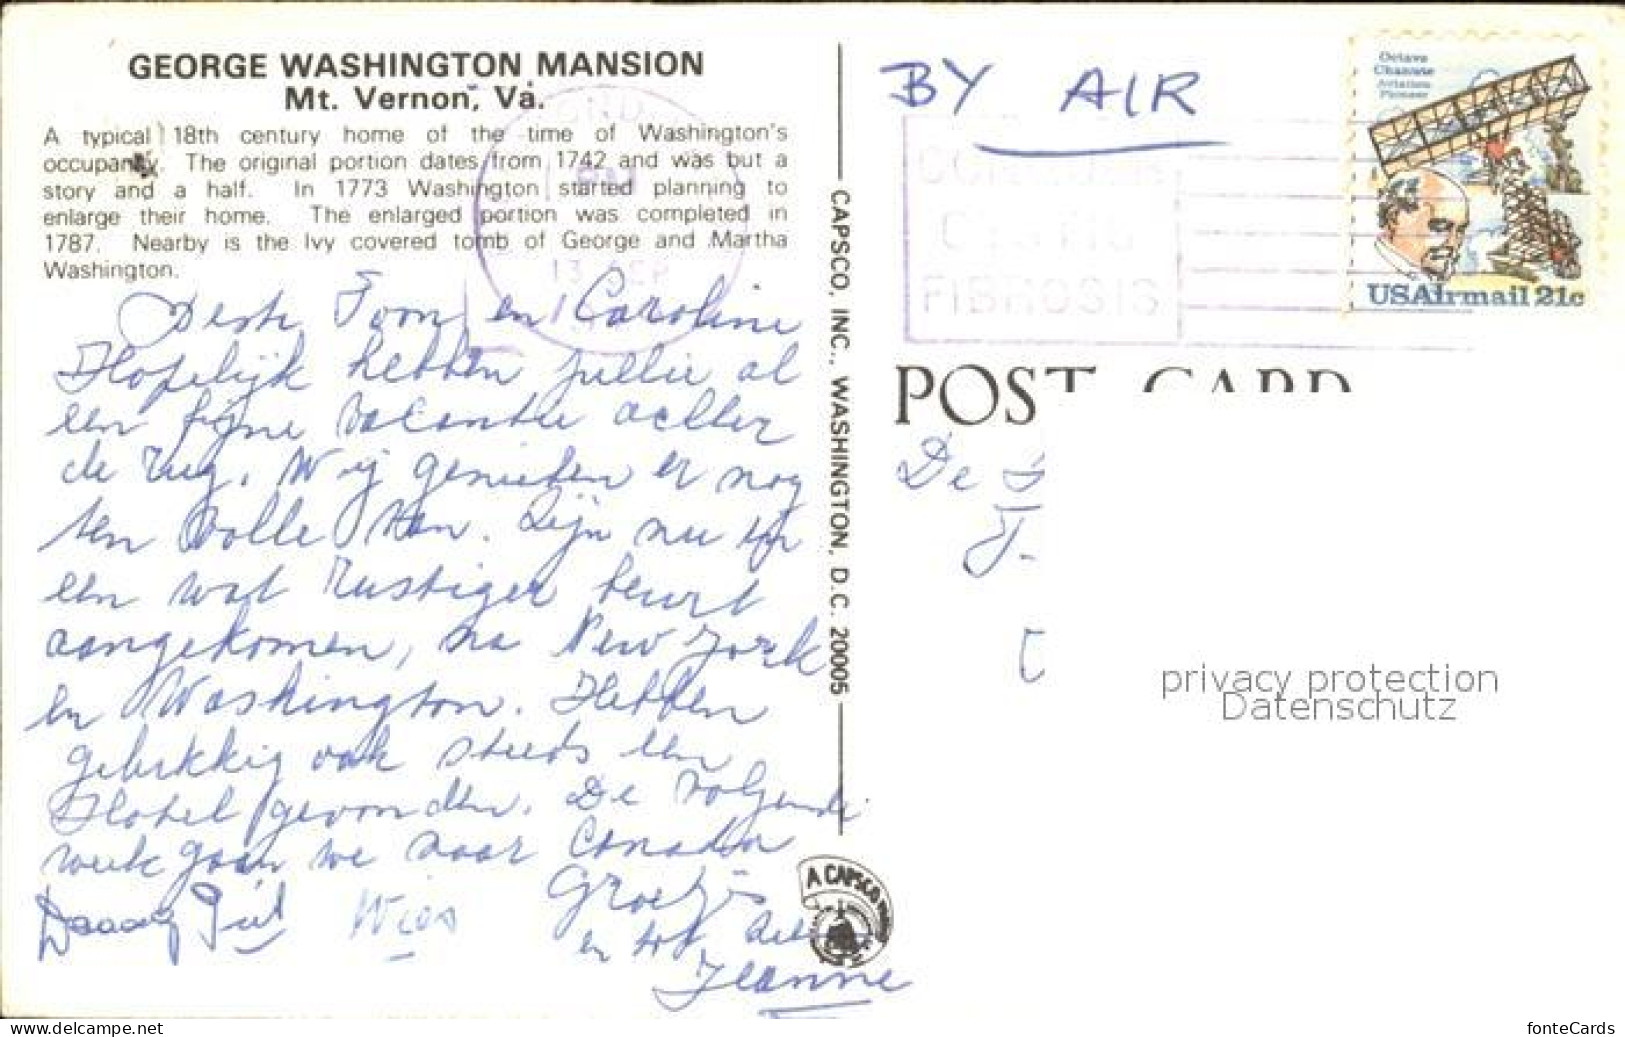 GEORGE WASHINGTON MANSION
Mt. Vernon, Va.
A typical 18th century home of the time of Washington's
occupancy. The original portion dates from 1742 and was but a
story and a half. In 1773 Washington started planning to
enlarge their home. The enlarged portion was completed in
1787. Nearby is the Ivy covered tomb of George and Martha
Washington.
Beste Toon en Caroline
Hopelijk hebben jullie al
een fijne vacantie achter
de rug. Wij genieten er nog
ten volle van. Zijn nu in
een wat rustiger beurt
aangekomen, na New York
en Washington. Hebben
gelukkig ook steeds een
Hotel gevonden. De volgende
week gaan we naar Canada
Groetjes
en tot
Jeanne
Daaaag Piet Wies
CAPSCO, INC., WASHINGTON, D.C. 20005
A CAPSCO
BY AIR
CONQUER
CYSTIC
FIBROSIS
13 SEP
Octave
Chanute
Aviation
Pioneer
USAirmail 21c
POST CARD
De
privacy protection
Datenschutz
www.delcampe.net
fonteCards